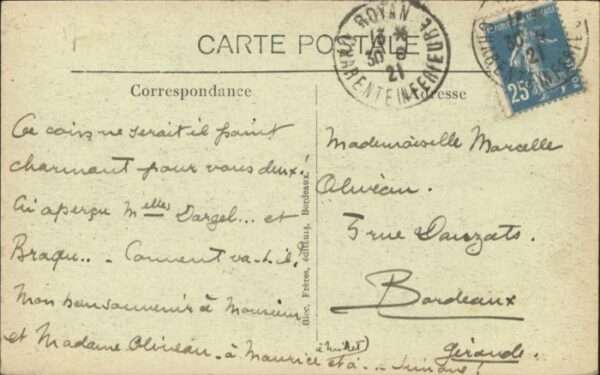 CARTE POSTALE
ROYAN
CHARENTE INFERIEURE
13
30 - 8
21
25c
Correspondance
Adresse
Ce coin ne serait il point
charmant pour vous deux!
Ai aperçu Melle Dargel... et
Braqu.. - Comment va-t-il?
Mon bon souvenir à Monsieur
et Madame Oliveau - à Maurice et à - Simone!
(à Mullet)
Mademoiselle Marcelle
Oliveau.
5 rue Dauzats.
Bordeaux
Gironde.
Bloc, Frères, éditeurs, Bordeaux